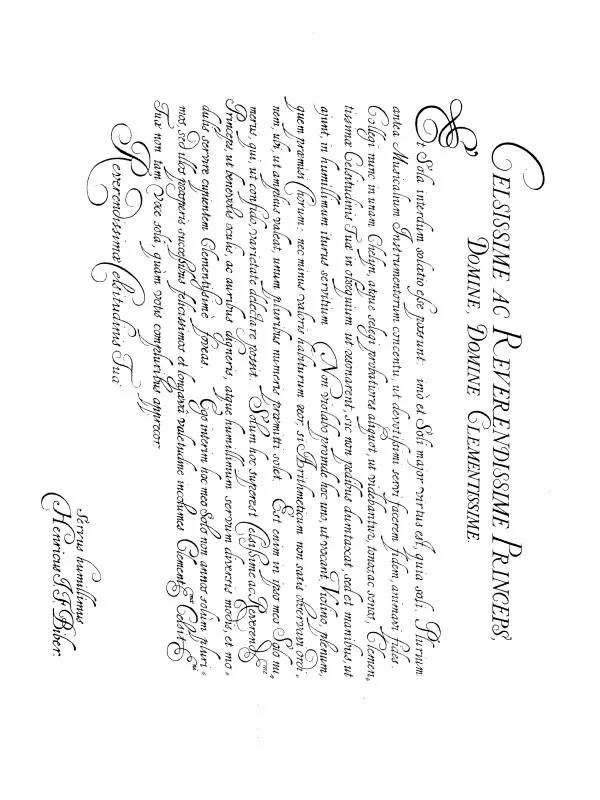 CELSISSIME AC REVERENDISSIME PRINCEPS,
DOMINE, DOMINE CLEMENTISSIME.
Et Sola interdum solatio esse possunt: imò et Soli major virtus est, quia soli. Plurium
antea Musicalium Instrumentorum concentu, ut devotissimi servi facerem fidem, animavi fides.
Collegi nunc in unam Chelyn, atque selegi probatiores aliquot, ut videbantur, tonos, ac sonos, Clemen,,
tissimæ Celsitudinis Tuæ in obsequium ut resonarent, sic non pedibus dumtaxat, sed et manibus, ut
ajunt, in humillimum iturus servitium. Non violabo proinde hoc uno, ut vocant, Violino, plenum,
quem præmisi Chorum: nec minus valoris habiturum reor, si Arithmeticum non satis observavi ordi,,
nem, ubi, ut amplius valeat, unum pluribus numeris præmitti solet. Est enim in ipso meo Solo nu,,
merus, qui, ut confido, varietate delectare possit. Solum hoc superest Celsissime ac Reverend.me
Princeps, ut benevolis oculis, ac auribus digneris, atque humillimum servum diversis modis, et mo,,
dulis servire cupientem Clementissimè foveas. Ego interim hoc meo Solo non annos solum pluri,,
mos, sed illos prosperis successibus felicissimos et longæva valetudine incolumes Clementis.mæ Celsit.nis
Tuæ non tam voce solâ, quàm votis compluribus apprecor
Reverendissimæ Celsitudinis Tuæ
Servus humillimus
Henricus I. F. Biber.